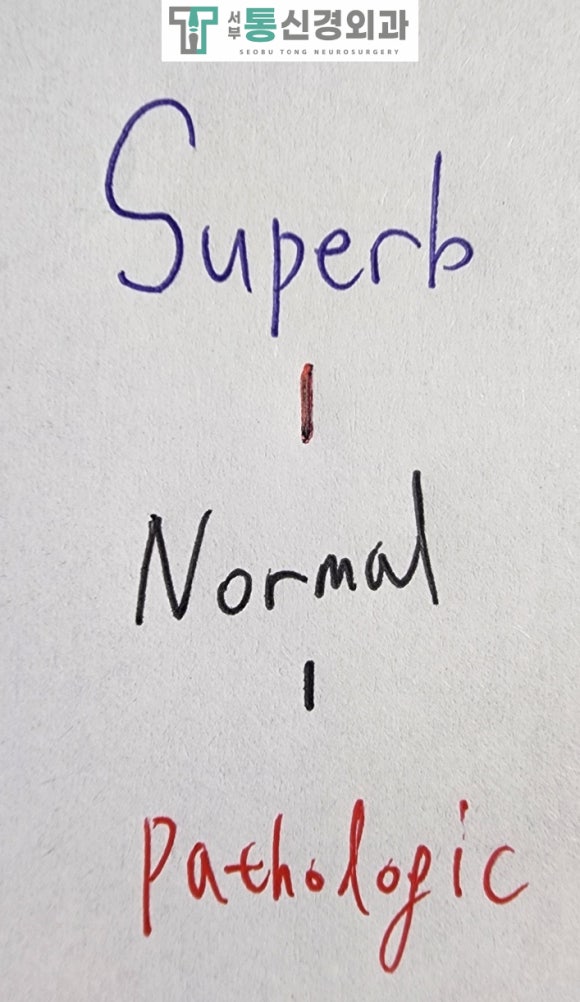 서부 통신경외과
SEOBU TONG NEUROSURGERY
Superb
Normal
Pathologic